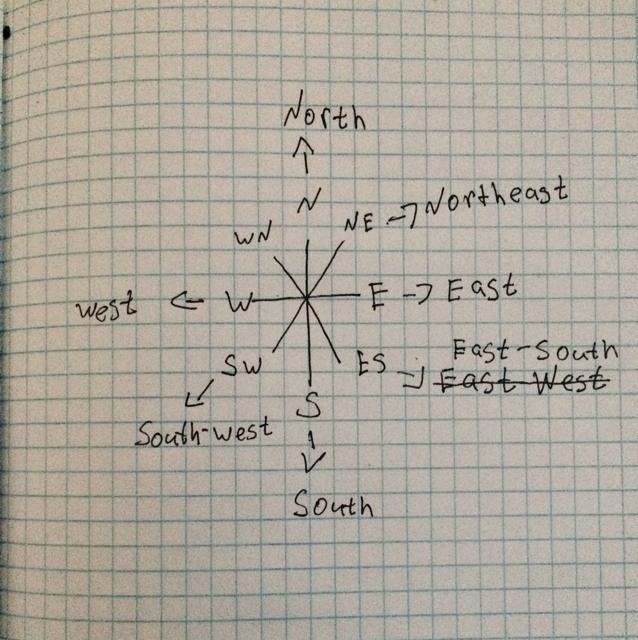 North
N
NE Northeast
WN
west W E East
East-South
ES East West
SW
S
South-west
South